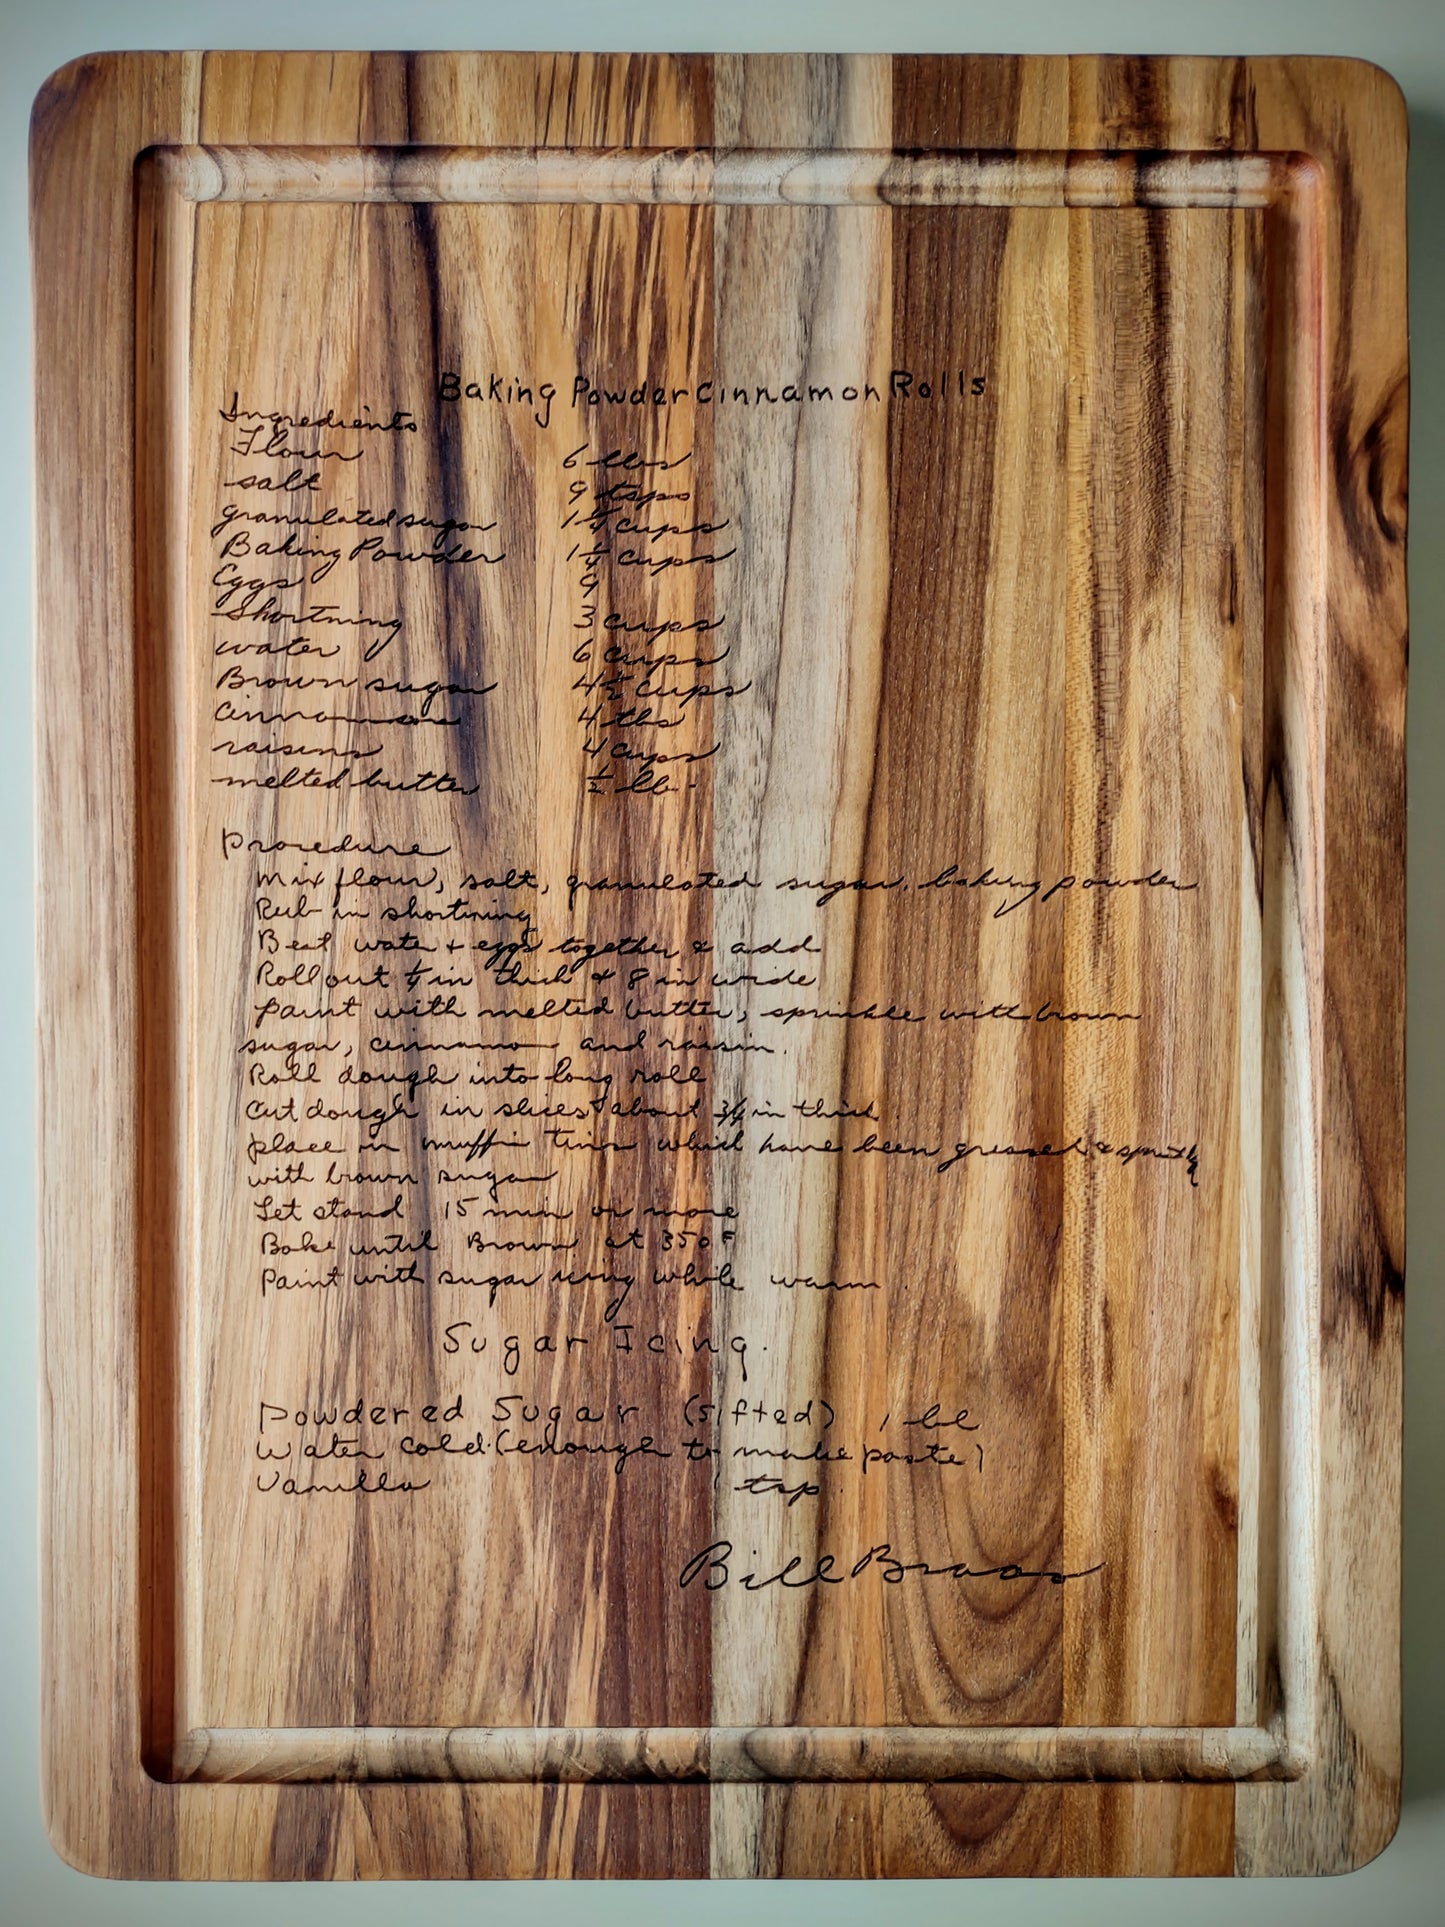 Baking Powder Cinnamon Rolls
Ingredients
Flour 6 lbs
salt 9 tsps
granulated sugar 1 1/4 cups
Baking Powder 1 1/4 cups
Eggs 9
Shortning 3 cups
water 6 cups
Brown sugar 4 1/2 cups
cinnamon 4 tbs
raisins 4 cups
melted butter 1/2 lb.
Procedure
Mix flour, salt, granulated sugar, baking powder
Rub in shortning
Beat water + eggs together & add
Roll out 1/4 in thick & 8 in wide
Paint with melted butter, sprinkle with brown
sugar, cinnamon and raisin.
Roll dough into long roll
Cut dough in slices about 3/4 in thick.
place in muffin tins which have been greased &
with brown sugar
Let stand 15 min or more
Bake until Brown at 350 F
Paint with sugar icing while warm.
Sugar Icing.
Powdered Sugar (sifted) 1
Water cold (enough to make paste)
Vanilla 1 tsp.
Bill Braas